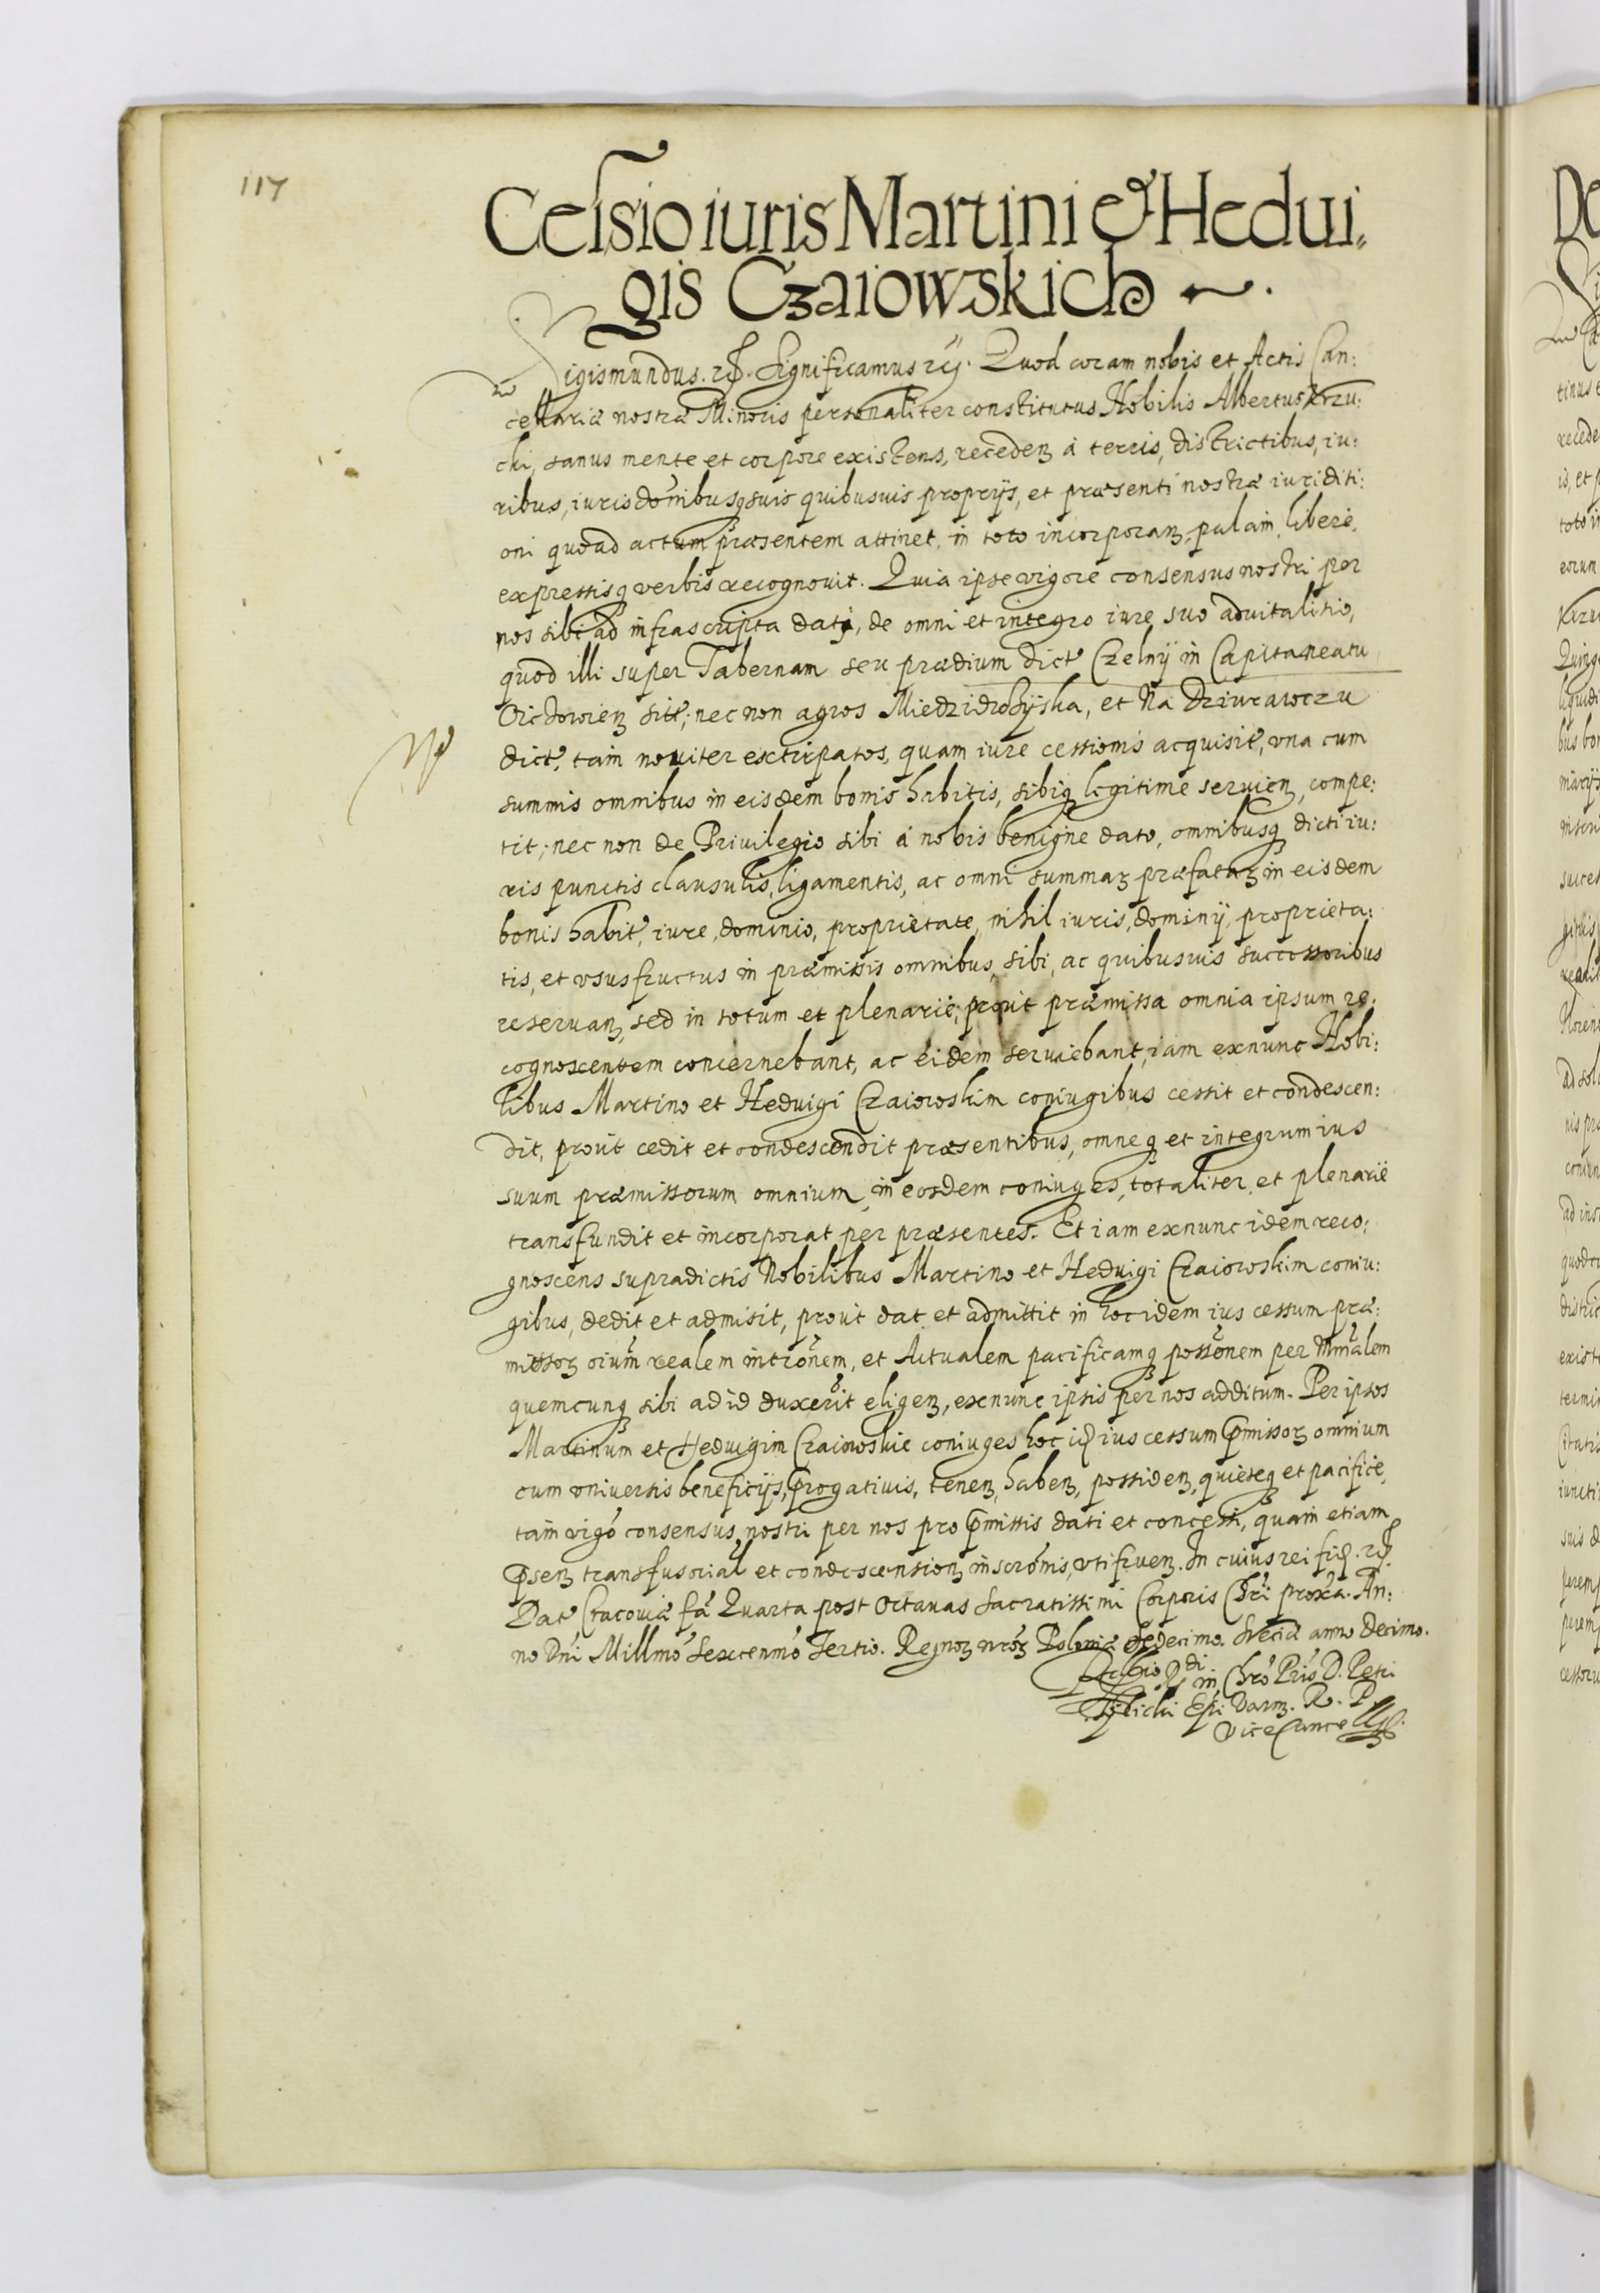 117
Cessio iuris Martini et Hedui„
gis Czaiowskich
Sigismundus. rß. Significamus rÿ. Quod coram nobis et Actis Can:
cellariæ nostræ Minoris personaliter constitutus Nobilis Albertus Krzu:
cki, sanus mente et corpore existens, recedenz á terris, districtibus, iu:
ribus, iurisdõnibusqꝫ suis quibusuis proprijs, et præsenti nostræ iuriditi:
oni quoad actum præsentem attinet, in toto incorporanz, palàm, liberè,
expressisqꝫ verbis recognouit. Quia ipse vigore consensus nostri per
nos sibi ad infrascripta dati, de omni et integro iure suo aduitalitio,
quod illi super Tabernam seu prædium dict Czelnÿ in Capitaneatu
Oicdowienz sit; nec non agros Miedzidrozÿska, et Na Dziurawczu
dict, tàm nouiter extirpatos, quam iure cessionis acquisit, vna cum
summis omnibus in eisdem bonis habitis, sibiqꝫ legitimè seruienz, compe:
tit; nec non de Priuilegio sibi á nobis benigne dato, omnibusqꝫ dicti iu:
ris punctis clausulis, ligamentis, ac omni summarꝫ præfatarꝫ in eisdem
bonis habit, iure, dominio, proprietate, nihil iuris, dominÿ, proprieta:
tis, et vsusfructus in præmissis omnibus, sibi, ac quibusuis successoribus
reseruanz, sed in totum et plenariè; prout præmissa omnia ipsum re:
cognoscentem concernebant, ac eidem seruiebant, iam exnunc Nobi:
libus Martino et Heduigi Czaiowskim coniugibus cessit et condescen:
dit, prout cedit et condescendit præsentibus, omneqꝫ et integrum ius
suum præmissorum omnium, in eosdem coniuges, totaliter, et plenariè
transfundit et incorporat per præsentes. Et iam exnunc idem reco:
gnoscens supradictis Nobilibus Martino et Heduigi Czaiowskim coniu:
gibus, dedit et admisit, prout dat et admittit in hoc idem ius cessum præ:
missorꝫ oium realem intrõnem, et Actualem pacificamqꝫ possõnem per Mnralem
quemcunqꝫ sibi ad id duxerit eligenz, exnunc ipsis per nos additum. Per ipsos
Martinum et Heduigim Czaiowskie coniuges hoc id ius cessum p̃missorꝫ omnium
cum vniuersis beneficijs, p̃rogatiuis, tenenz, habenz, possidenz, quietèqꝫ et pacificè,
tàm vigõ consensus nostri per nos pro p̃missis dati et concessi, quàm etiam
p̃senz transfusorial et condescensionz inscrõnis, vtifruenz. In cuius rei fid. rß.
Dat Cracouiæ fã Quarta post Octauas Sacratissimi Corporis Chri proxã. An:
no Dni Millmõ Sexcenmõ Tertio. Regnorꝫ nrorꝫ Poloniæ Sedecimo. Sueciæ anno Decimo.
Relatio Rdi in Chrõ Pris D. Petri
Tylicki Epi Varm. R. P.
Vice Cancellarÿ.